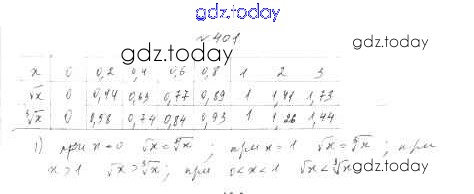 gdz.today
№401
gdz.today
gdz.today
x 0 0,2 0,4 0,6 0,8 1 2 3
√x 0 0,44 0,63 0,77 0,89 1 1,41 1,73
∛x 0 0,58 0,74 0,84 0,93 1 1,26 1,44
1) при x=0 √x=∛x; при x=1 √x=∛x; при
x>1 √x>∛x; при 0<x<1 √x<∛x
gdz.today